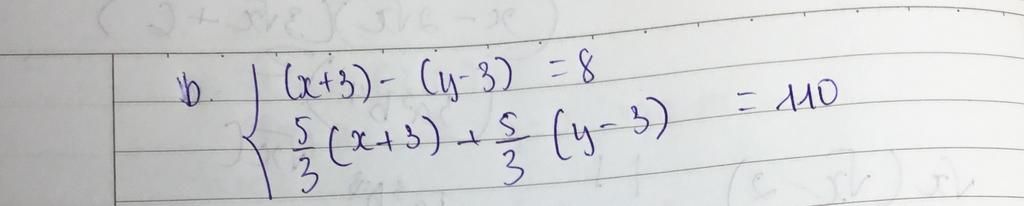 b. (x+3) - (y-3) = 8
5/3 (x+3) + 5/3 (y-3) = 110